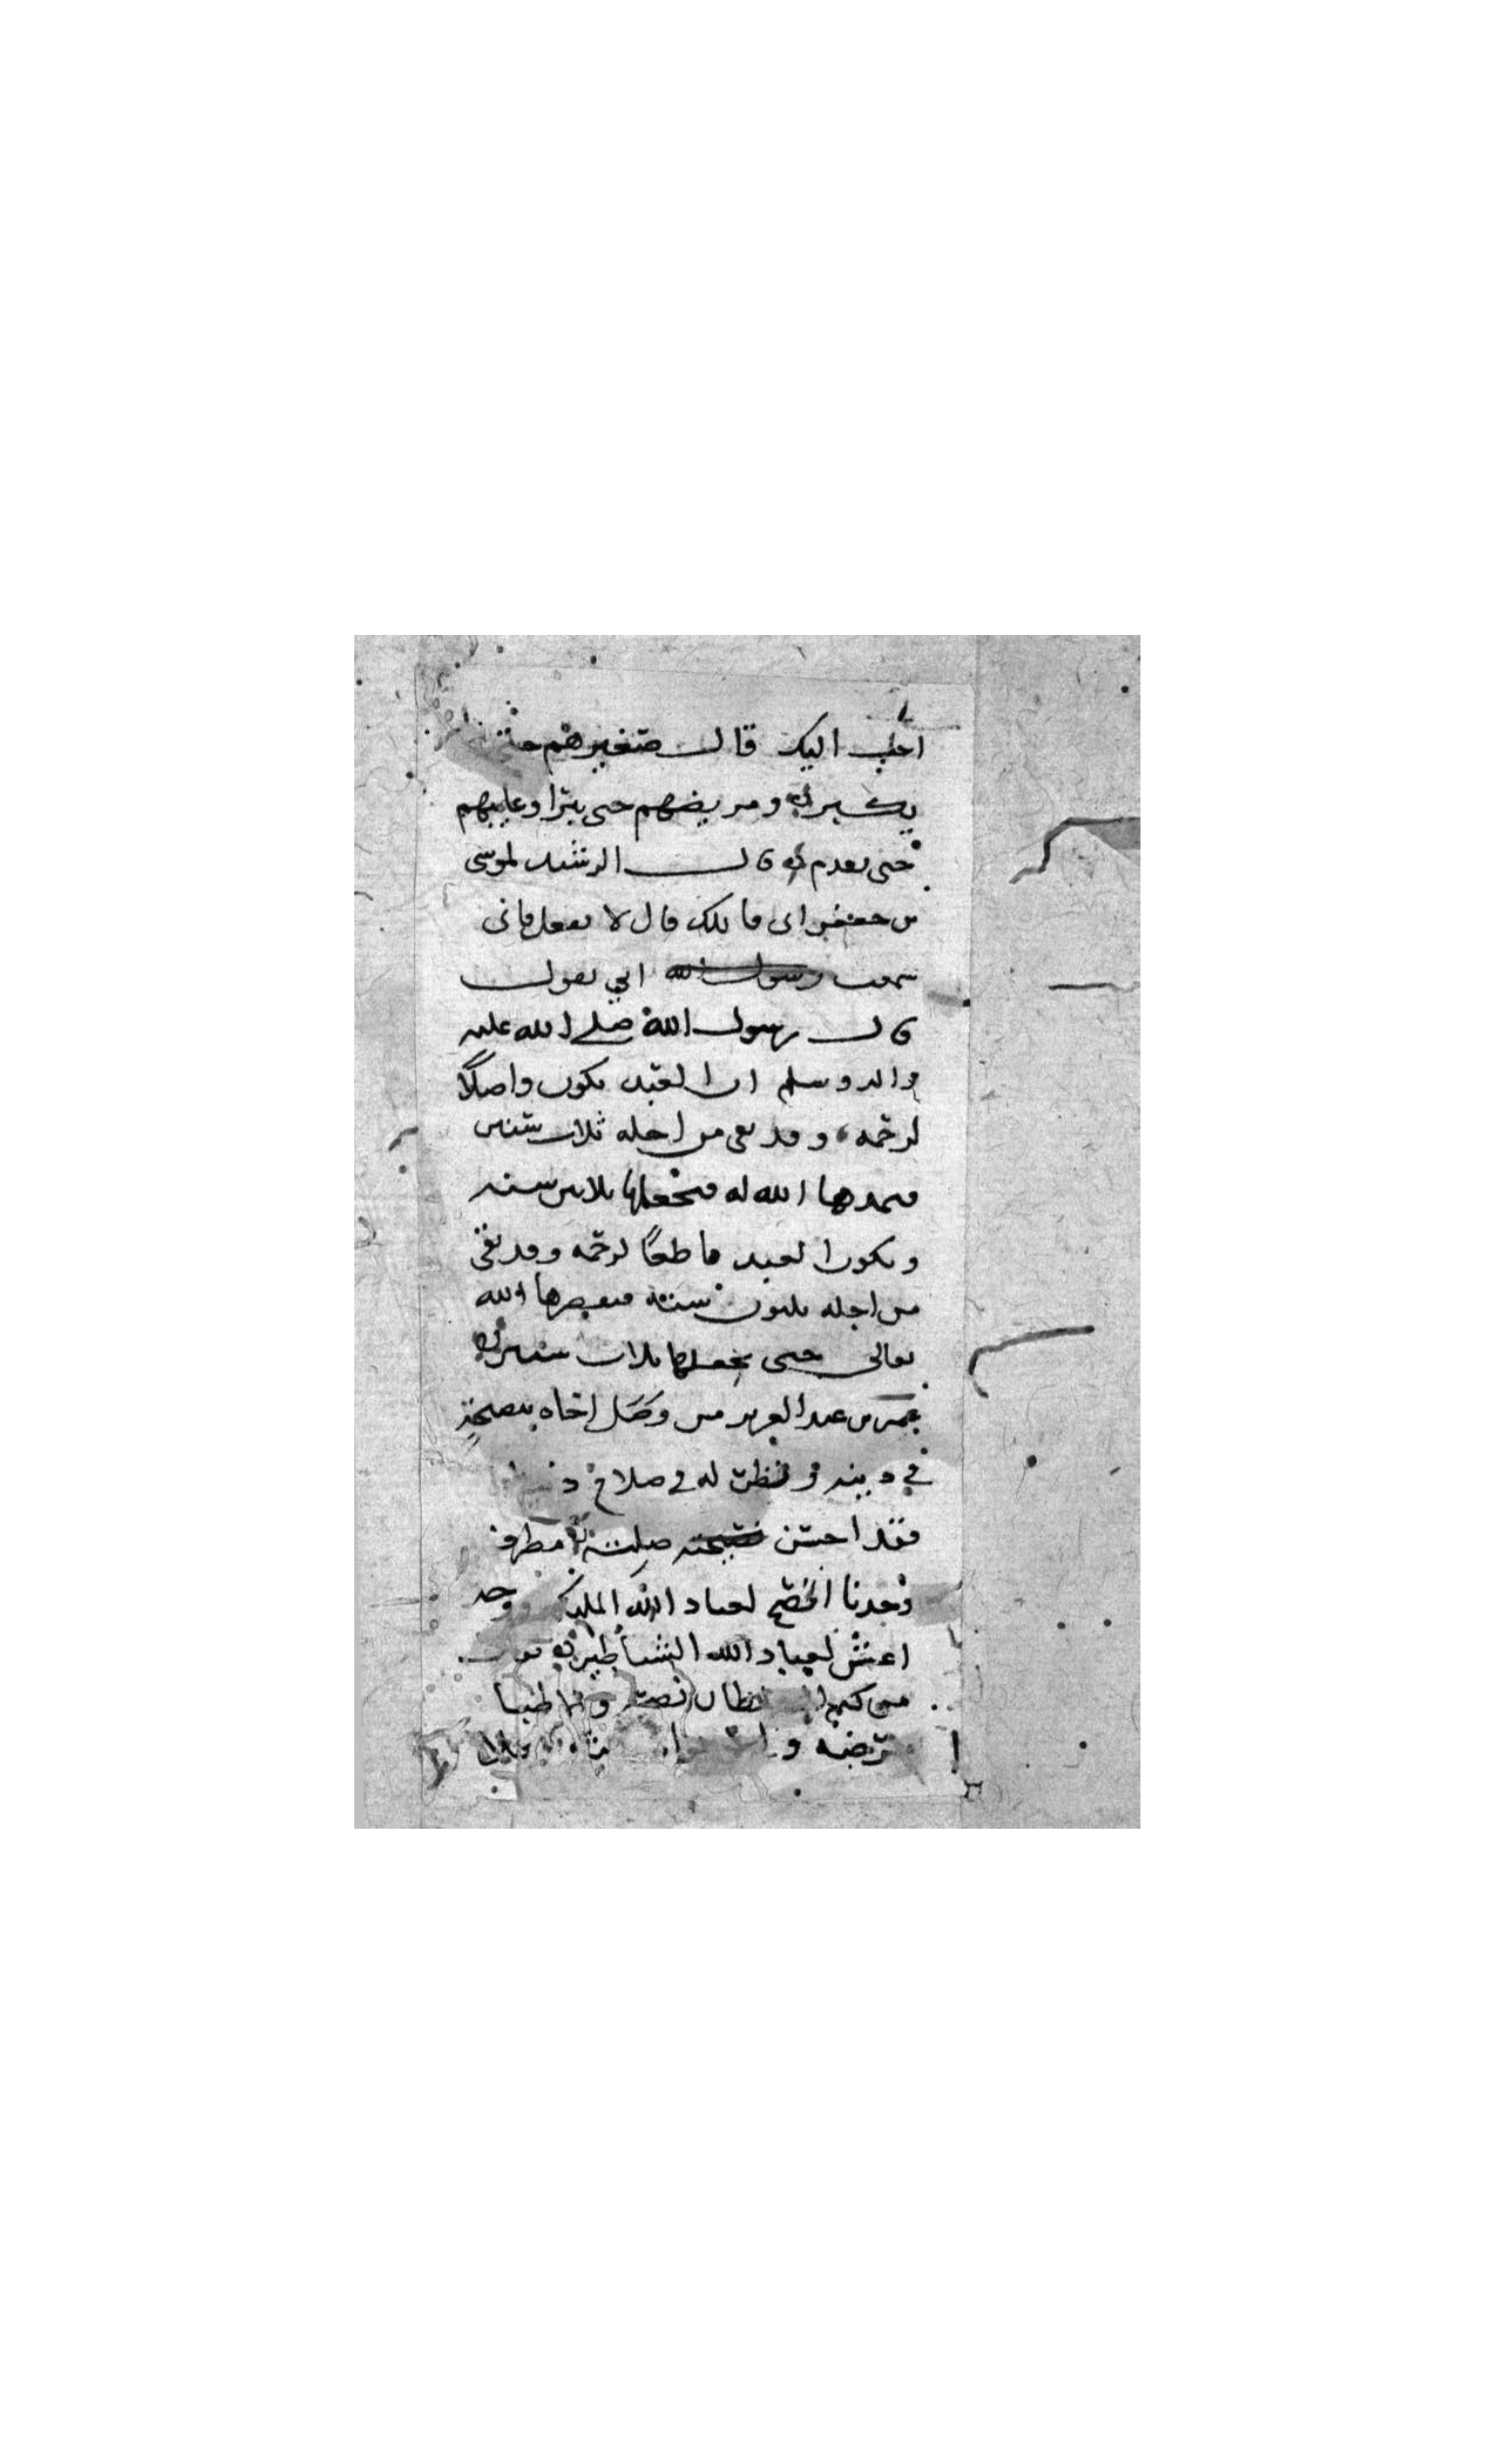 احب اليك قال صغيرهم حتى
يكبر ومريضهم حتى يبرا وغايبهم
حتى يقدم قال الرشيد لموسى
بن جعفر اني قاتلك قال لا تفعل فاني
سمعت رسول الله ابي يقول
قال رسول الله صلى الله عليه
واله وسلم ان العبد يكون واصلاً
لرحمه وقد بقي من اجله ثلاث سنين
فيمدها الله له فيجعلها ثلاثين سنه
ويكون العبد قاطعًا لرحمه وقد بقى
من اجله ثلثون سنة فيقصرها الله
تعالى حتى يجعلها ثلاث سنين
عمر بن عبد العزيز من وصل اخاه بنصيحةٍ
في دينه ونظر له في صلاح
فقد احسن نصيحته صلته مطرف
وجدنا انصح لعباد الله المليكه ووجد
اغش لعباد الله الشياطين
من كتم السلطان نصحه والاطبا
مرضه